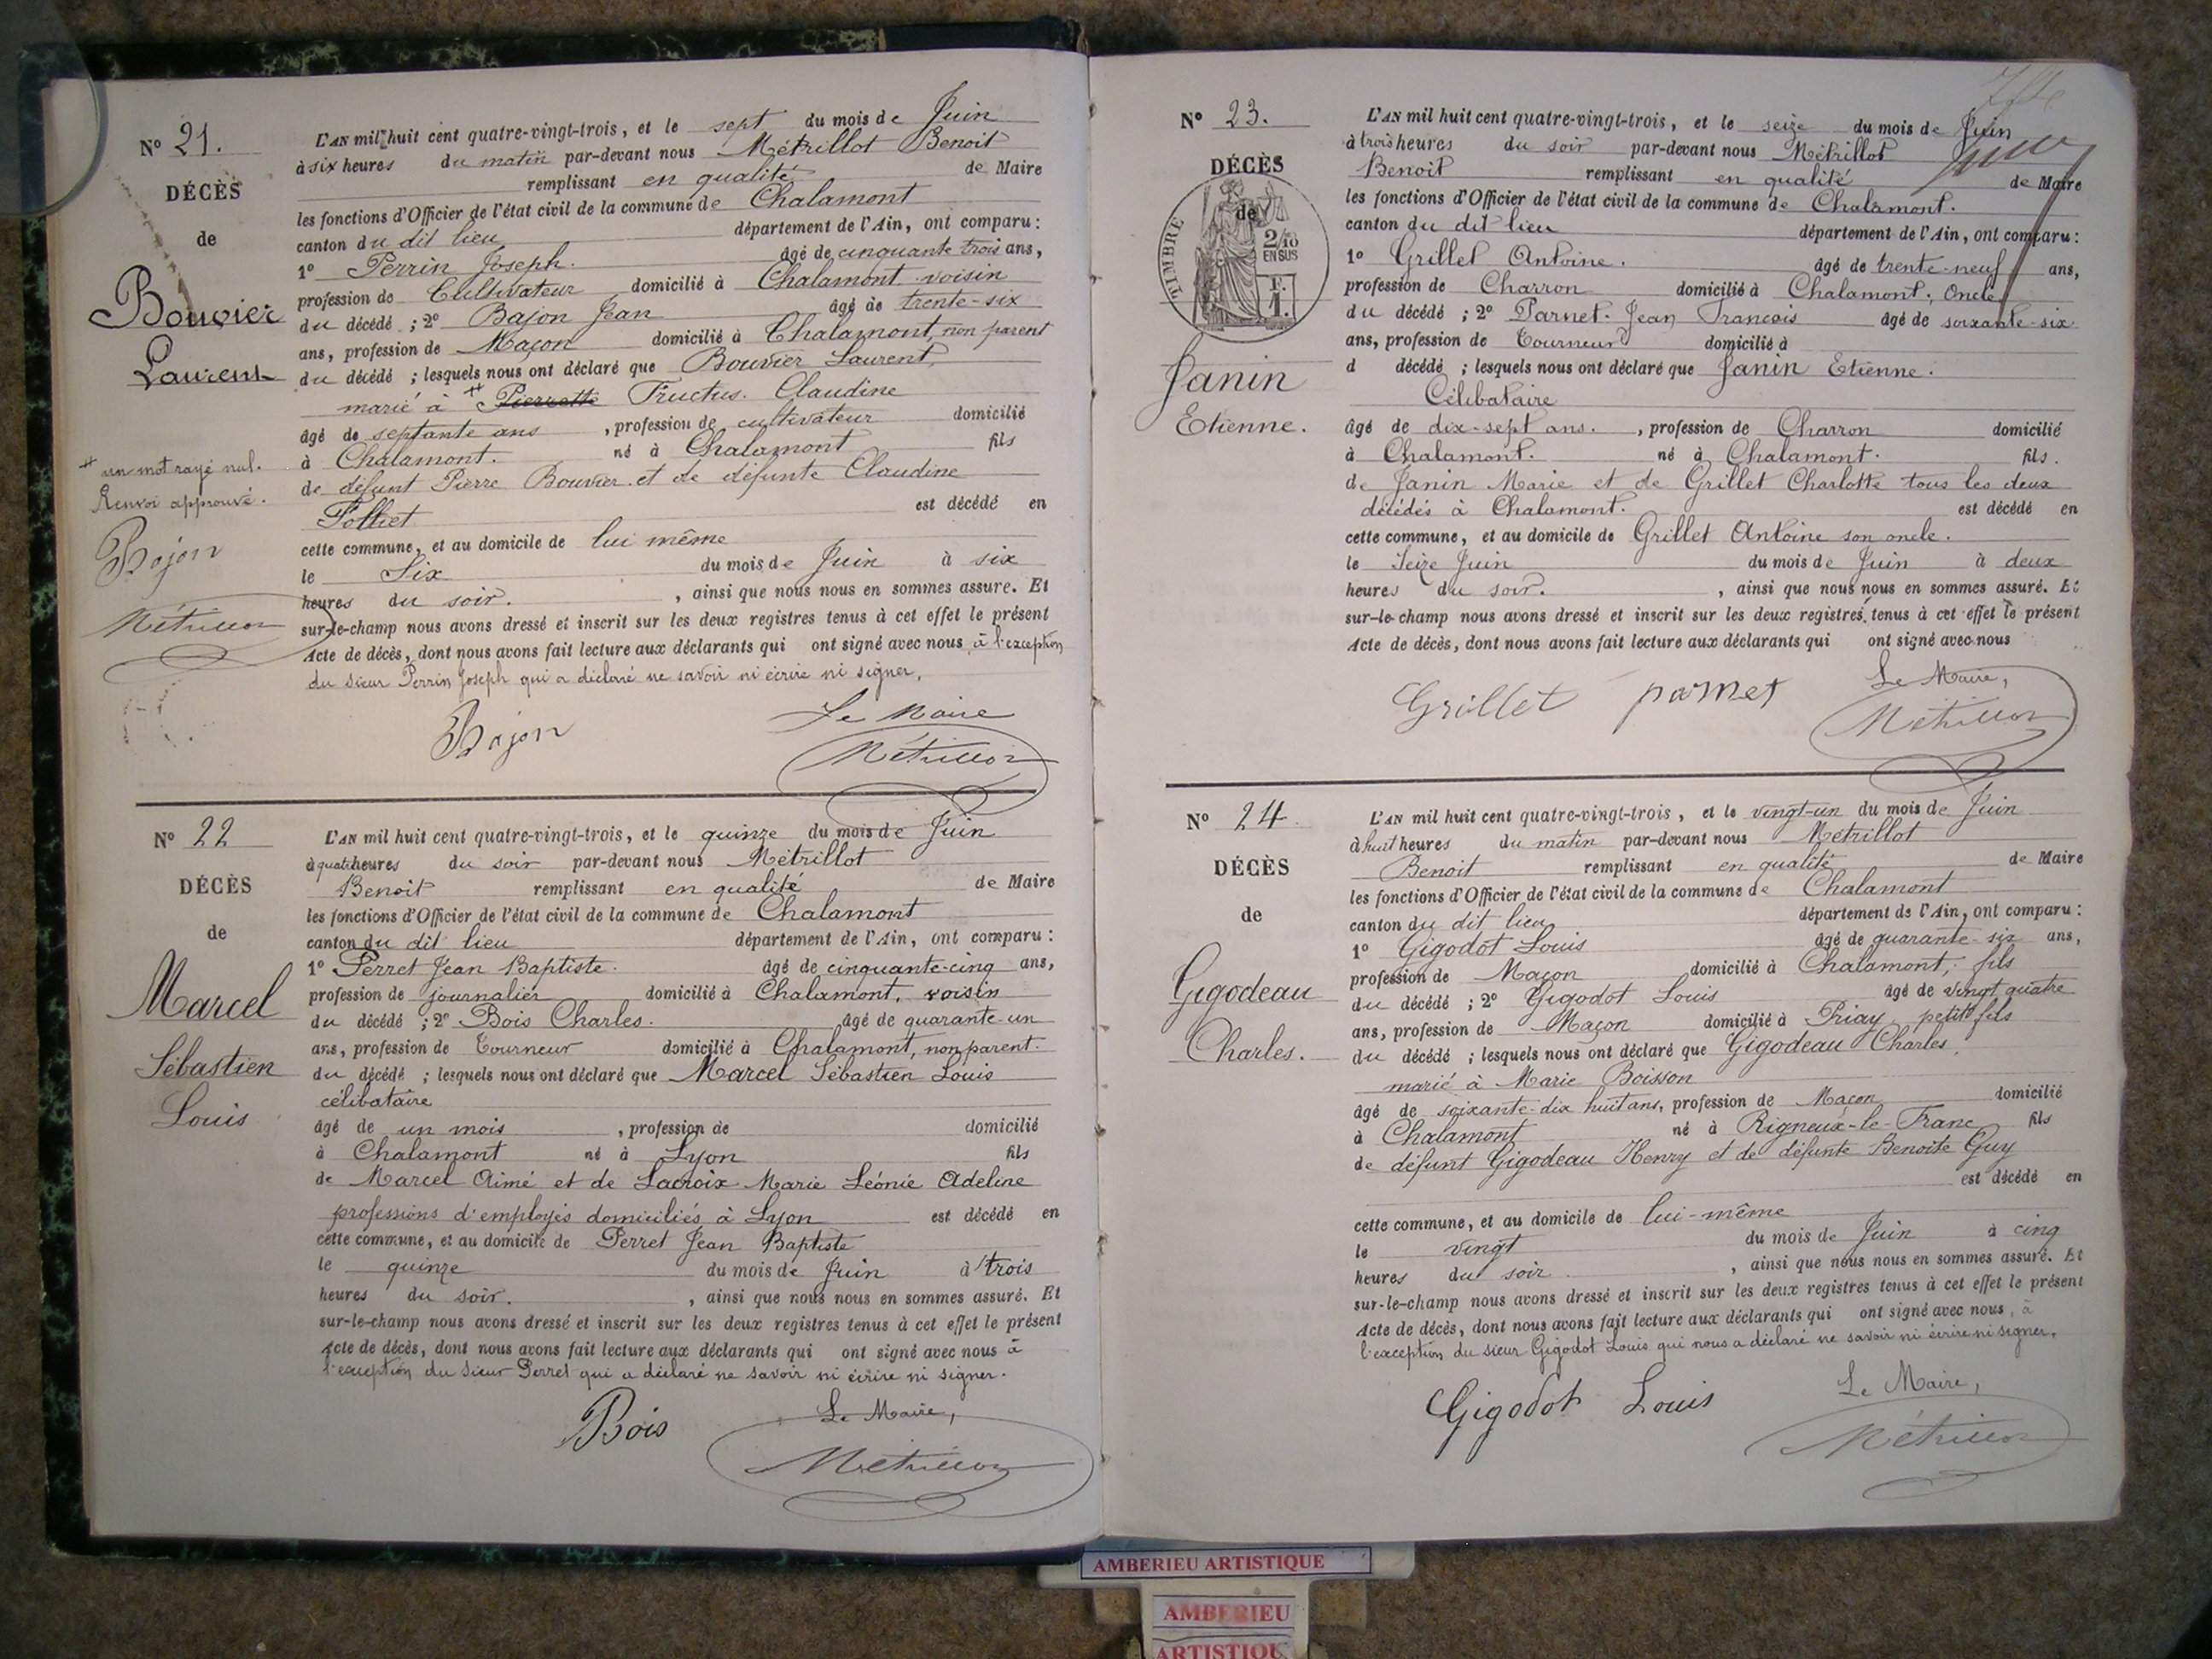 N° 21.
DÉCÈS
de
Bouvier
Laurent
* un mot rayé nul.
Renvoi approuvé.
Bajon
Métrillot
L'AN mil huit cent quatre-vingt-trois, et le sept du mois de Juin
à six heures du matin par-devant nous Métrillot Benoit
remplissant en qualité de Maire
les fonctions d'Officier de l'état civil de la commune de Chalamont
canton du dit lieu département de l'Ain, ont comparu :
1° Perrin Joseph. âgé de cinquante trois ans,
profession de Cultivateur domicilié à Chalamont voisin
du décédé ; 2° Bajon Jean âgé de trente-six
ans, profession de Maçon domicilié à Chalamont, non parent
du décédé ; lesquels nous ont déclaré que Bouvier Laurent,
marié à * Pierrette Fructus. Claudine
âgé de septante ans , profession de cultivateur domicilié
à Chalamont. né à Chalamont fils
de défunt Pierre Bouvier et de défunte Claudine
Folliet est décédé en
cette commune, et au domicile de lui même
le Six du mois de Juin à six
heures du soir. , ainsi que nous nous en sommes assuré. Et
sur-le-champ nous avons dressé et inscrit sur les deux registres tenus à cet effet le présent
Acte de décès, dont nous avons fait lecture aux déclarants qui ont signé avec nous à l'exception
du sieur Perrin Joseph qui a déclaré ne savoir ni écrire ni signer,
Le Maire
Bajon Métrillot
N° 22
DÉCÈS
de
Marcel
Sébastien
Louis
L'AN mil huit cent quatre-vingt-trois, et le quinze du mois de Juin
à quatre heures du soir par-devant nous Métrillot
Benoit remplissant en qualité de Maire
les fonctions d'Officier de l'état civil de la commune de Chalamont
canton du dit lieu département de l'Ain, ont comparu :
1° Perret Jean Baptiste. âgé de cinquante-cinq ans,
profession de journalier domicilié à Chalamont, voisin
du décédé ; 2° Bois Charles. âgé de quarante-un
ans, profession de Tourneur domicilié à Chalamont, non parent.
du décédé ; lesquels nous ont déclaré que Marcel Sébastien Louis
célibataire
âgé de un mois , profession de domicilié
à Chalamont né à Lyon fils
de Marcel Aimé et de Lacroix Marie Léonie Adeline
professions d'employés domiciliés à Lyon est décédé en
cette commune, et au domicile de Perret Jean Baptiste
le quinze du mois de Juin à trois
heures du soir. , ainsi que nous nous en sommes assuré. Et
sur-le-champ nous avons dressé et inscrit sur les deux registres tenus à cet effet le présent
Acte de décès, dont nous avons fait lecture aux déclarants qui ont signé avec nous à
l'exception du Sieur Perret qui a déclaré ne savoir ni écrire ni signer.
Bois Le Maire,
Métrillot
N° 23.
DÉCÈS
de
TIMBRE
2/10
EN SUS
F.
1.
Janin
Etienne.
L'AN mil huit cent quatre-vingt-trois, et le seize du mois de Juin
à trois heures du soir par-devant nous Métrillot
Benoit remplissant en qualité de Maire
les fonctions d'Officier de l'état civil de la commune de Chalamont.
canton du dit lieu département de l'Ain, ont comparu :
1° Grillet Antoine. âgé de trente-neuf ans,
profession de Charron domicilié à Chalamont, Oncle
du décédé ; 2° Parnet. Jean François âgé de soixante-six
ans, profession de Tourneur domicilié à
d décédé ; lesquels nous ont déclaré que Janin Etienne.
Célibataire
âgé de dix-sept ans. , profession de Charron domicilié
à Chalamont. né à Chalamont. fils.
de Janin Marie et de Grillet Charlotte tous les deux
décédés à Chalamont. est décédé en
cette commune, et au domicile de Grillet Antoine son oncle.
le Seize Juin du mois de Juin à deux
heures du soir. , ainsi que nous nous en sommes assuré. Et
sur-le-champ nous avons dressé et inscrit sur les deux registres tenus à cet effet le présent
Acte de décès, dont nous avons fait lecture aux déclarants qui ont signé avec nous
Le Maire,
Grillet parnet Métrillot
N° 24
DÉCÈS
de
Gigodeau
Charles.
L'AN mil huit cent quatre-vingt-trois, et le vingt-un du mois de Juin
à huit heures du matin par-devant nous Métrillot
Benoit remplissant en qualité de Maire
les fonctions d'Officier de l'état civil de la commune de Chalamont
canton du dit lieu département de l'Ain, ont comparu :
1° Gigodot Louis âgé de quarante-six ans,
profession de Maçon domicilié à Chalamont, fils
du décédé ; 2° Gigodot Louis âgé de vingt quatre
ans, profession de Maçon domicilié à Priay petit fils
du décédé ; lesquels nous ont déclaré que Gigodeau Charles,
marié à Marie Boisson
âgé de soixante-dix huit ans, profession de Maçon domicilié
à Chalamont né à Rigneux-le-Franc fils
de défunt Gigodeau Henry et de défunte Benoite Guy
est décédé en
cette commune, et au domicile de lui-même
le vingt du mois de Juin à cinq
heures du soir , ainsi que nous nous en sommes assuré. Et
sur-le-champ nous avons dressé et inscrit sur les deux registres tenus à cet effet le présent
Acte de décès, dont nous avons fait lecture aux déclarants qui ont signé avec nous, à
l'exception du sieur Gigodot Louis qui nous a déclaré ne savoir ni écrire ni signer.
Gigodot Louis Le Maire,
Métrillot
AMBERIEU ARTISTIQUE
AMBERIEU
ARTISTIQUE